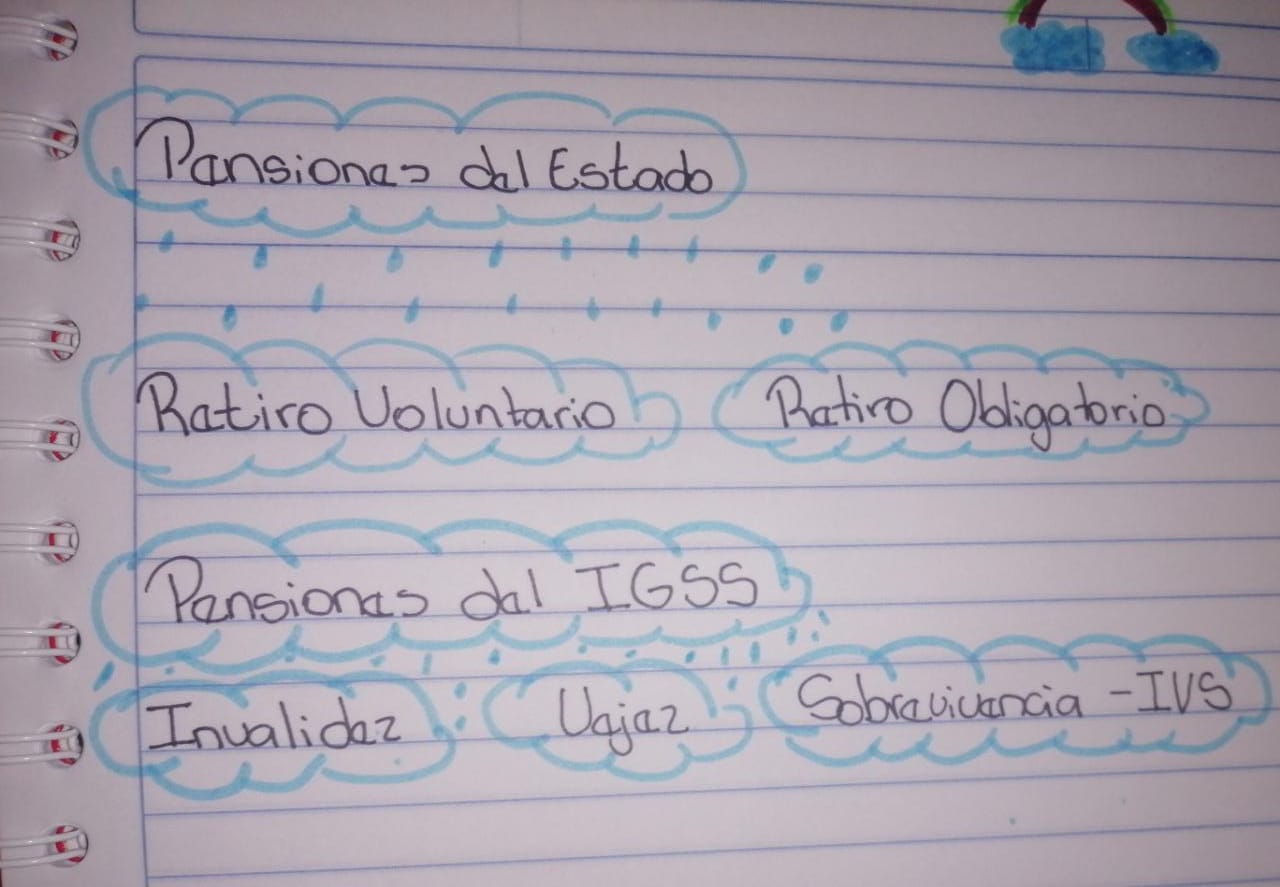 Pensiones del Estado
Retiro Voluntario Retiro Obligatorio
Pensiones del IGSS
Invalidez Vejez Sobrevivencia - IVS